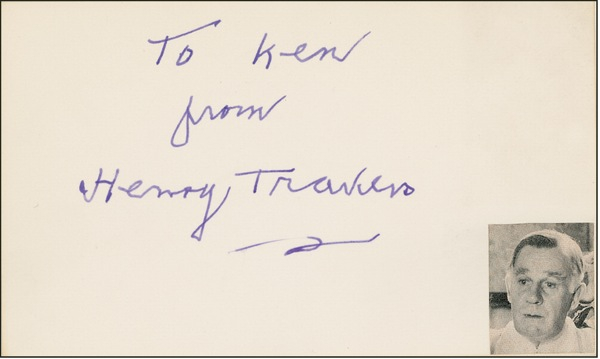 To Ken
from
Henry Travers